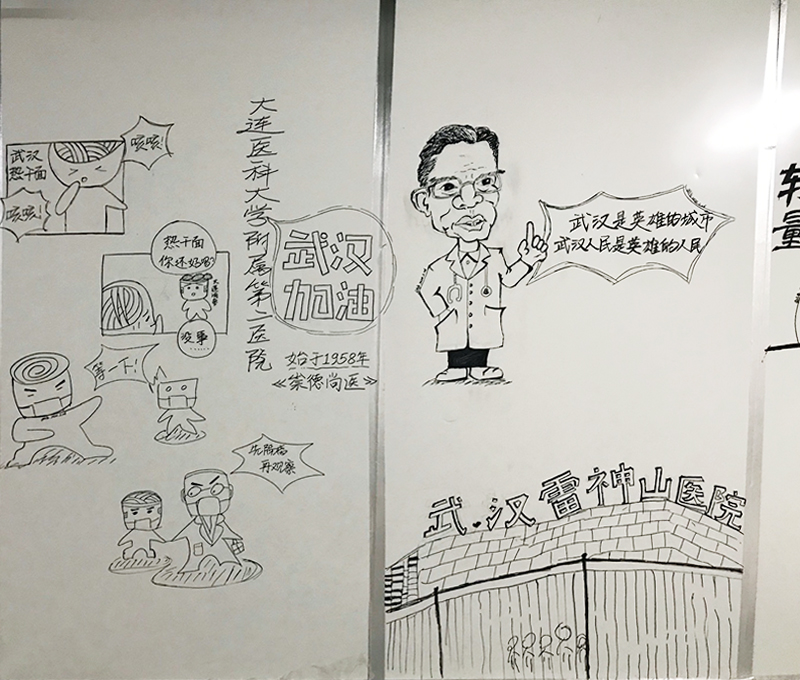 武汉
热干面
咳咳!
咳咳!
热干面
你还好吗?
没事
等一下!
先隔离
再观察
大连医科大学附属第二医院
武汉
加油
始于1958年
《崇德尚医》
武汉是英雄的城市
武汉人民是英雄的人民
武汉雷神山医院
量